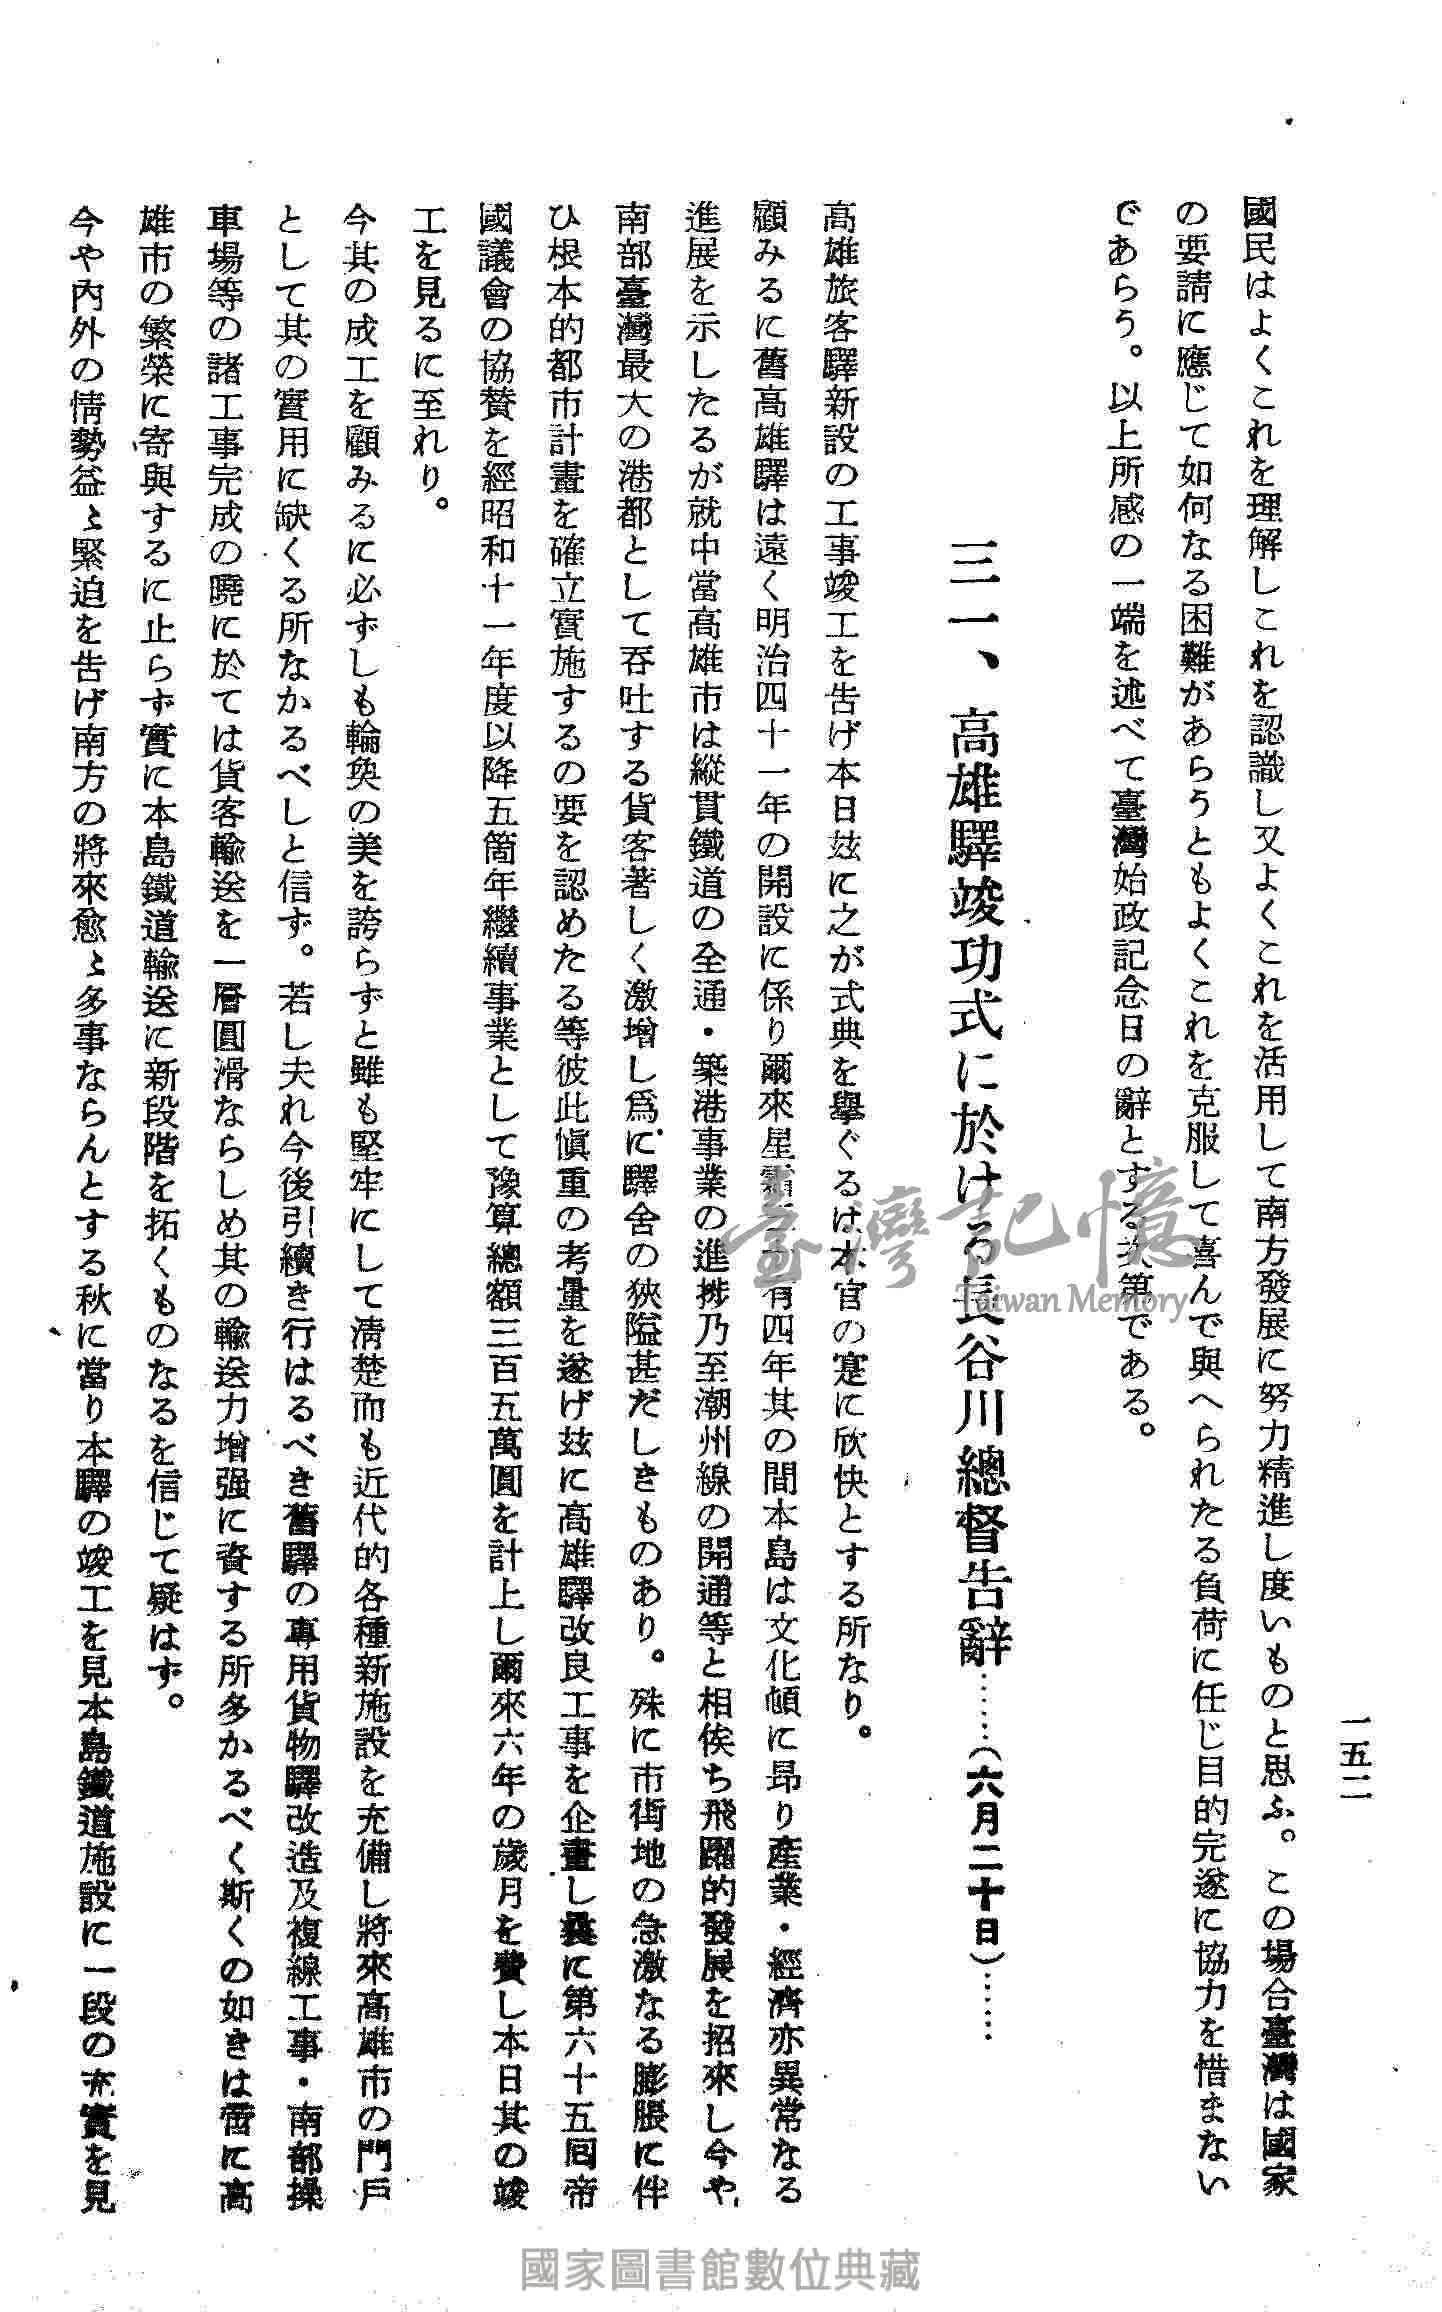 一五二
國民はよくこれを理解しこれを認識し又よくこれを活用して南方發展に努力精進し度いものと思ふ。この場合臺灣は國家
の要請に應じて如何なる困難があらうともよくこれを克服して喜んで與へられたる負荷に任じ目的完遂に協力を惜まない
であらう。以上所感の一端を述べて臺灣始政記念日の辭とする次第である。
三一、高雄驛竣功式に於ける長谷川總督告辭……(六月二十日)……
高雄旅客驛新設の工事竣工を告げ本日玆に之が式典を擧ぐるは本官の寔に欣快とする所なり。
顧みるに舊高雄驛は遠く明治四十一年の開設に係り爾來星霜有四年其の間本島は文化頓に昂り產業・經濟亦異常なる
進展を示したるが就中當高雄市は縱貫鐵道の全通・築港事業の進捗乃至潮州線の開通等と相俟ち飛躍的發展を招來し今や
南部臺灣最大の港都として呑吐する貨客著しく激增し爲に驛舍の狹隘甚だしきものあり。殊に市街地の急激なる膨脹に伴
ひ根本的都市計畫を確立實施するの要を認めたる等彼此愼重の考量を遂げ玆に高雄驛改良工事を企畫し曩に第六十五回帝
國議會の協贊を經昭和十一年度以降五箇年繼續事業として豫算總額三百五萬圓を計上し爾來六年の歲月を費し本日其の竣
工を見るに至れり。
今其の成工を顧みるに必ずしも輪奐の美を誇らずと雖も堅牢にして淸楚而も近代的各種新施設を充備し將來高雄市の門戶
として其の實用に缺くる所なかるべしと信ず。若し夫れ今後引續き行はるべき舊驛の專用貨物驛改造及複線工事・南部操
車場等の諸工事完成の曉に於ては貨客輸送を一層圓滑ならしめ其の輸送力增强に資する所多かるべく斯くの如きは啻に高
雄市の繁榮に寄與するに止らず實に本島鐵道輸送に新段階を拓くものなるを信じて疑はず。
今や內外の情勢益〻緊迫を告げ南方の將來愈〻多事ならんとする秋に當り本驛の竣工を見本島鐵道施設に一段の充實を見
臺灣記憶
Taiwan Memory
國家圖書館數位典藏